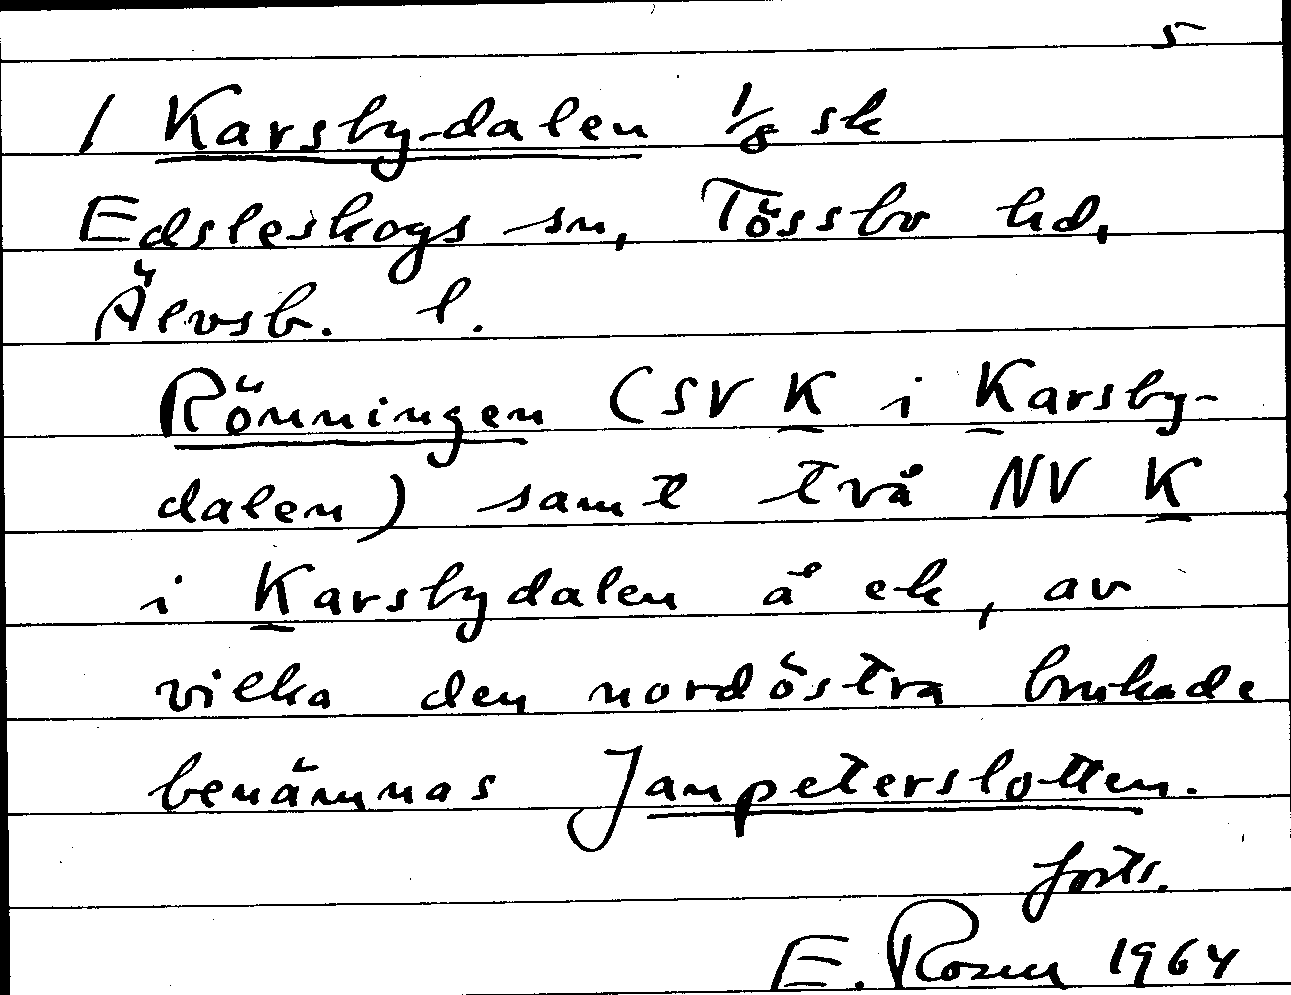 5
1 Karsbydalen 1/8 sk
Edsleskogs sn, Tössbo hd,
Älvsb. l.
Rönningen (SV K i Karsby-
dalen) samt två NV K
i Karsbydalen å ek, av
vilka den nordöstra brukade
benämnas Janpeterslotten.
forts.
E. Rosen 1964